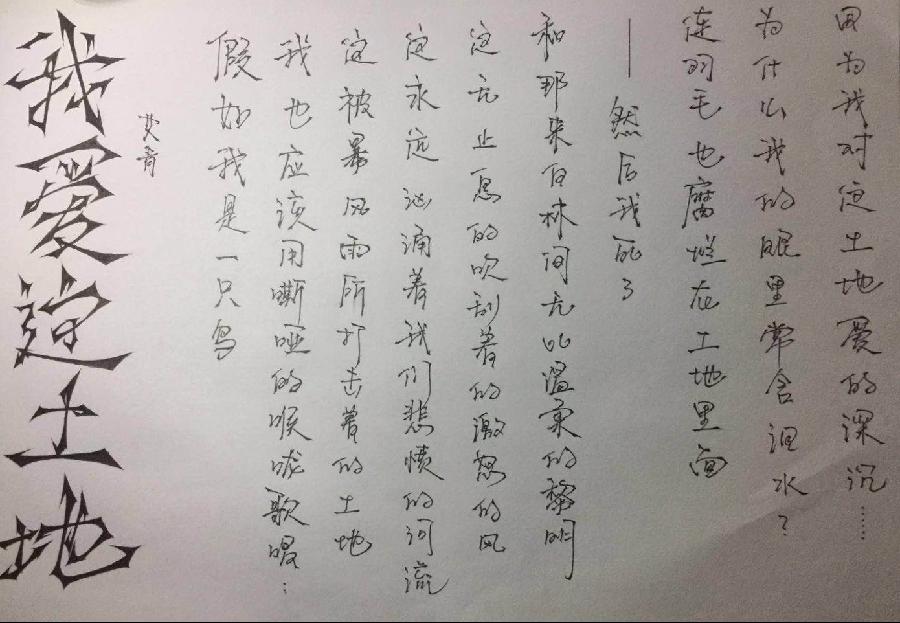 我爱这土地
艾青
假如我是一只鸟
我也应该用嘶哑的喉咙歌唱：
这被暴风雨所打击着的土地
这永远汹涌着我们悲愤的河流
这无止息的吹刮着的激怒的风
和那来自林间无比温柔的黎明
——然后我死了
连羽毛也腐烂在土地里面
为什么我的眼里常含泪水？
因为我对这土地爱的深沉……